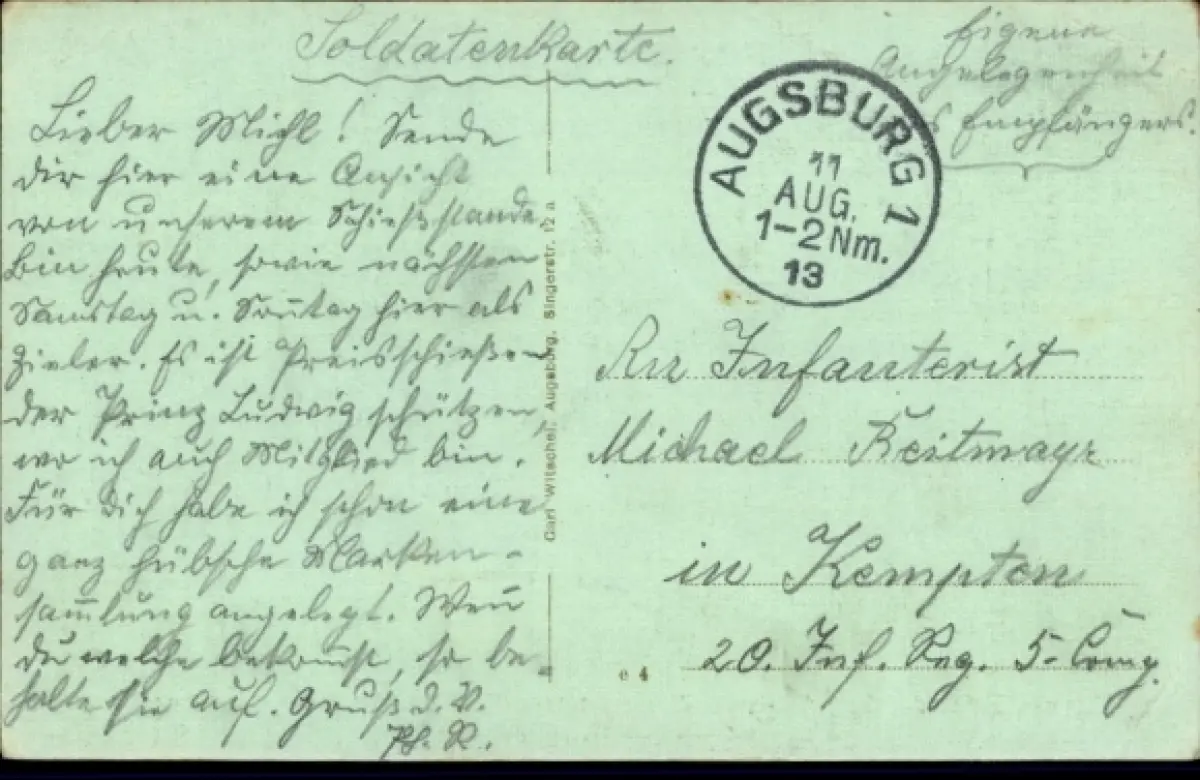 Soldatenkarte.
Eigene
Angelegenheit
des Empfängers.
AUGSBURG 1
11
AUG.
1-2 Nm.
13
Lieber Michl! Sende
dir hier eine Ansicht
von unserem Schießstande
bin heute, sowie nächsten
Samstag u. Soñtag hier als
Zieler. Es ist Preisschießen
der Prinz Ludwig schützen,
wo ich auch Mitglied bin.
Für dich habe ich schon eine
ganz hübsche Marken-
sam̄lung angelegt. Weñ
du welche bekom̄st, so be-
halte sie auf. Gruß d. V.
Carl Witschel, Augsburg, Singerstr. 12 a
An Infanterist
Michael Reitmayr
in Kempten
20. Inf. Reg. 5. Comp.
e 4